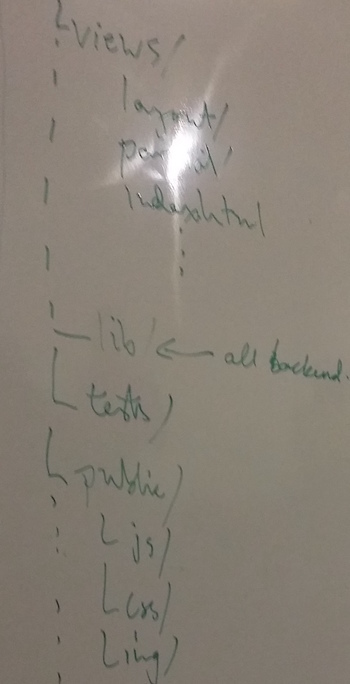 views/
layout/
partial/
index.html
lib/ ← all backend.
tests/
public/
js/
css/
img/